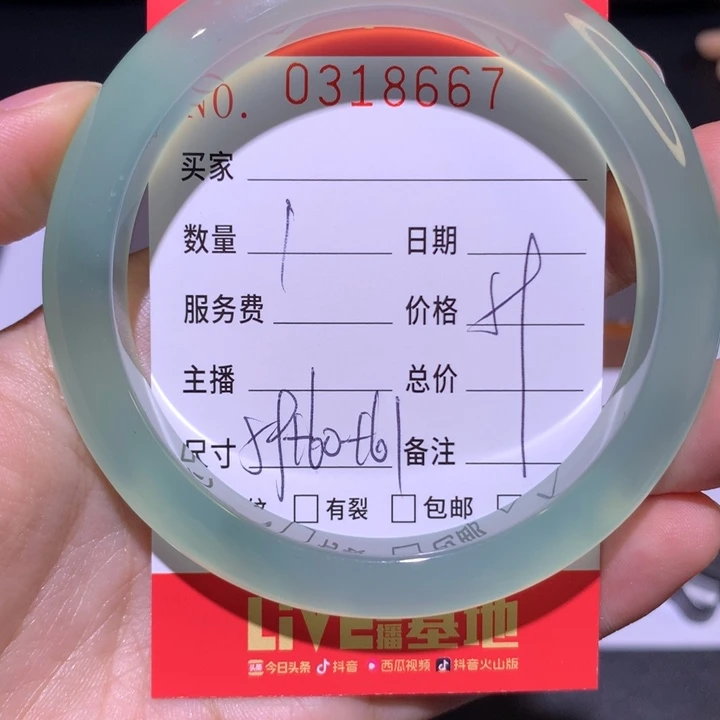 NO. 0318667
买家
数量 1 日期
服务费 价格
主播 总价
尺寸 备注
有裂 包邮
LiVE播基地
今日头条 抖音 西瓜视频 抖音火山版